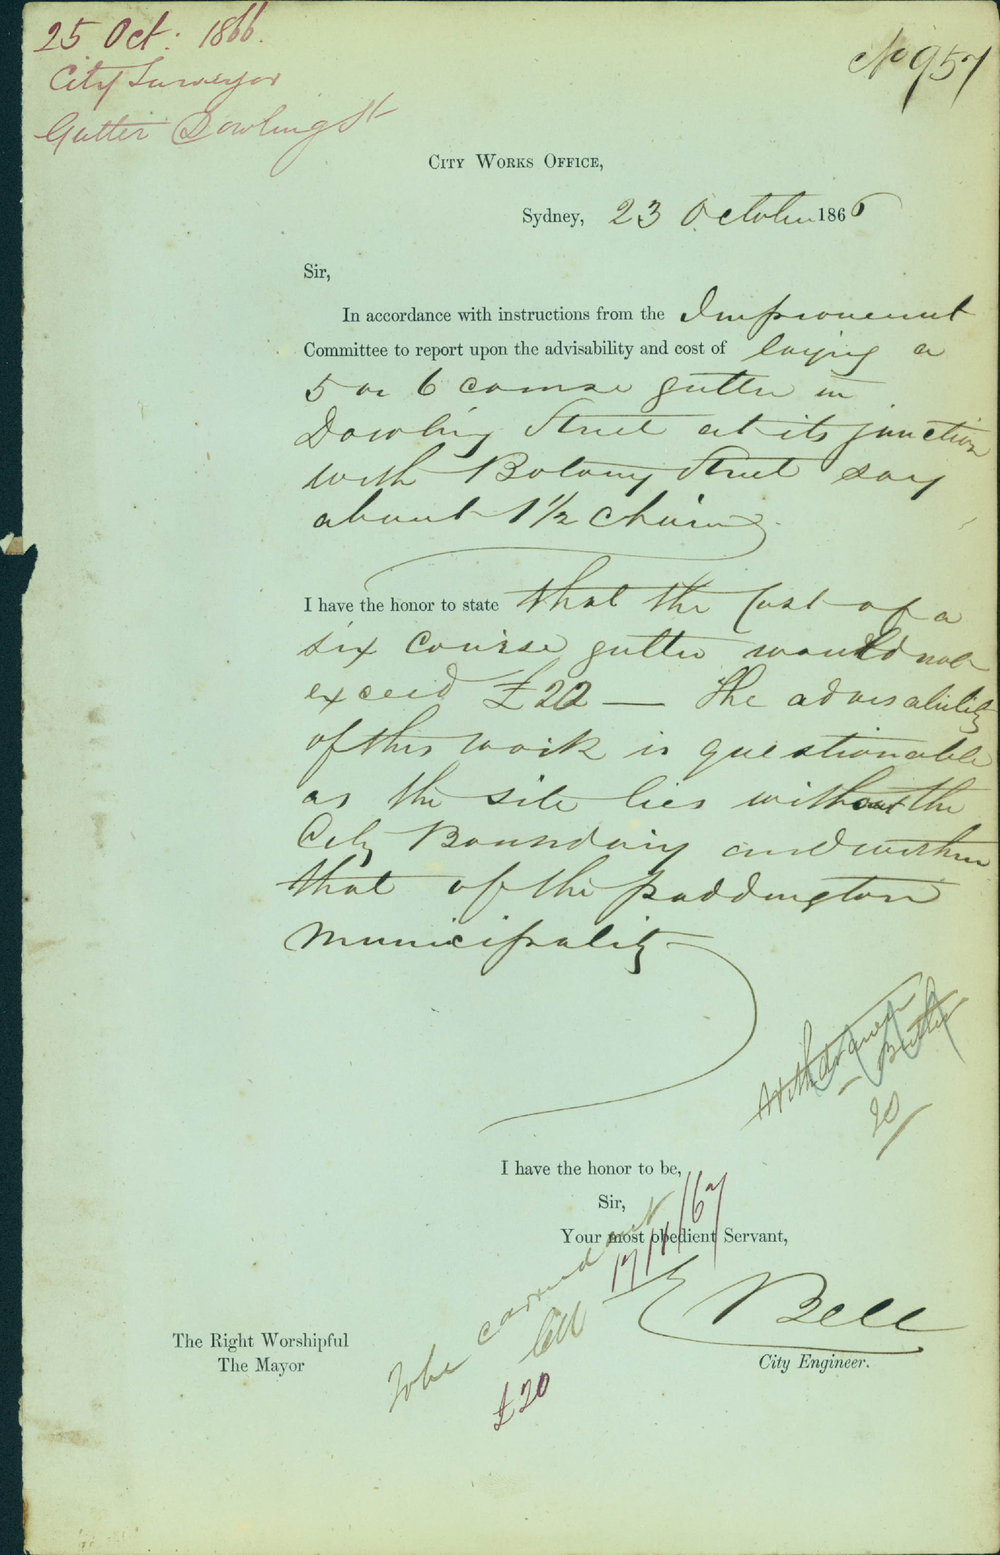 25 Oct: 1866.
City Surveyor
Gutter Dowling St
No 957
City Works Office,
Sydney, 23 October 1866
Sir,
In accordance with instructions from the Improvement
Committee to report upon the advisability and cost of laying a
5 or 6 course gutter in
Dowling Street at its junction
with Botany Street say
about 1½ chains
I have the honor to state that the Cost of a
six course gutter would not
exceed £22 — The advisability
of this work is questionable
as the site lies without the
City Boundary and within
that of the Paddington
Municipality
Withdrawn
20/
I have the honor to be,
Sir,
Your most obedient Servant,
17/1/67
To be carried out
£20
E Bell
City Engineer.
The Right Worshipful
The Mayor